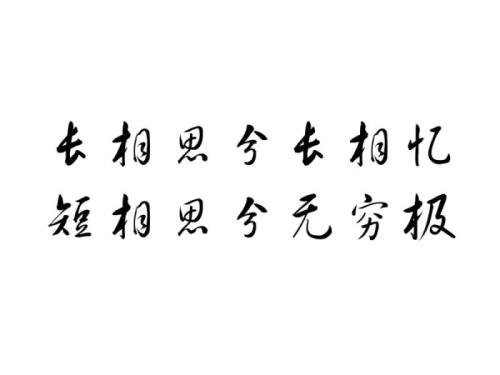 长相思兮长相忆
短相思兮无穷极